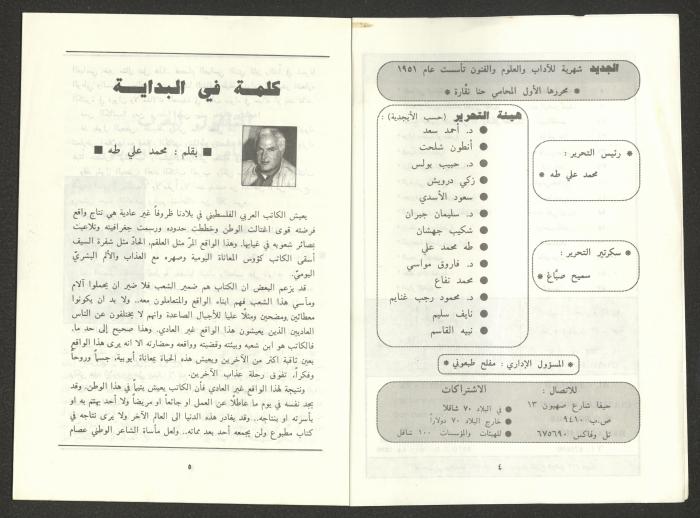 الجديد شهرية للآداب والعلوم والفنون تأسست عام ١٩٥١
* محررها الأول المحامي حنا نقّارة *
هيئة التحرير (حسب الأبجدية) :
● د. أحمد سعد
● أنطون شلحت
● د. حبيب بولس
● زكي درويش
● سعود الأسدي
● د. سليمان جبران
● شكيب جهشان
● طه محمد علي
● د. فاروق مواسي
● محمد نفاع
● د. محمود رجب غنايم
● نايف سليم
● نبيه القاسم
* رئيس التحرير :
محمد علي طه *
* سكرتير التحرير :
سميح صبّاغ *
* المسؤول الإداري : مفلح طبعوني *
للاتصال :
حيفا شارع صهيون ١٣
ص.ب ٩٤١٠
تل وفاكس ٦٧٥٦٩٠
الاشتراكات
● في البلاد ٧٠ شاقلا
● خارج البلاد ٧٠ دولاراً
● للهيئات والمؤسسات ١٠٠ شاقل
٤
كلمة في البداية
■ بقلم : محمد علي طه ■
يعيش الكاتب العربي الفلسطيني في بلادنا ظروفاً غير عادية هي نتاج واقع
فرضته قوى اغتالت الوطن وخططت حدوده ورسمت جغرافيته وتلاعبت
بمصائر شعوبه في غيابها. وهذا الواقع المرّ مثل العلقم، الحادّ مثل شفرة السيف
أسقى الكاتب كؤوس المعاناة اليومية وصهره مع العذاب والألم البشريّ
اليوميّ.
قد يزعم البعض ان الكتاب هم ضمير الشعب فلا ضير ان يحملوا آلام
ومآسي هذا الشعب فهم ابناء الواقع والمتعاملون معه.. ولا بد ان يكونوا
معطائين ومضحين ومثلًا عليا للأجيال الصاعدة وانهم لا يختلفون عن الناس
العاديين الذين يعيشون هذا الواقع غير العادي. وهذا صحيح إلى حد ما.
فالكاتب هو ابن شعبه وبيئته وقضيته وواقعه وحضارته الا انه يرى هذا الواقع
بعين ثاقبة اكثر من الآخرين ويعيش هذه الحياة بمعاناة أيوبية، جسماً وروحاً
وفكراً، تفوق رحلة عذاب الآخرين.
ونتيجة لهذا الواقع غير العادي فأن الكاتب يعيش يتيماً في هذا الوطن. وقد
يجد نفسه في يوم ما عاطلًا عن العمل او جائعاً او مريضاً ولا أحد يهتم به او
بأسرته او بنتاجه.. وقد يغادر هذه الدنيا الى العالم الآخر ولا يرى نتاجه في
كتاب مطبوع ولن يجمعه أحد بعد مماته.. ولعل مأساة الشاعر الوطني عصام
٥